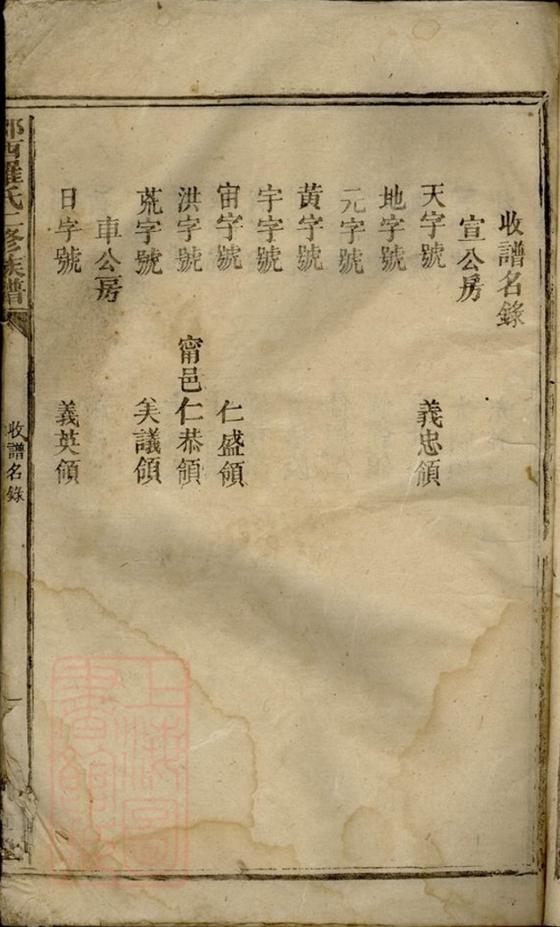 收譜名錄
宣公房
天字號 義忠領
地字號
元字號
黃字號
宇字號
宙字號 仁盛領
洪字號 甯邑仁恭領
荒字號 美議領
車公房
日字號 義英領
西羅氏二修族譜
收譜名錄
上海圖書館藏